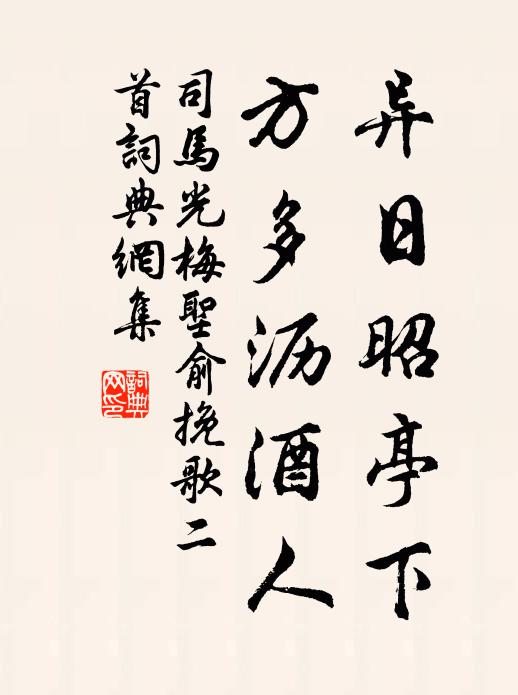 异日昭亭下
方多沥酒人
司馬光梅聖俞挽歌二
首詞典網集
詞典网印